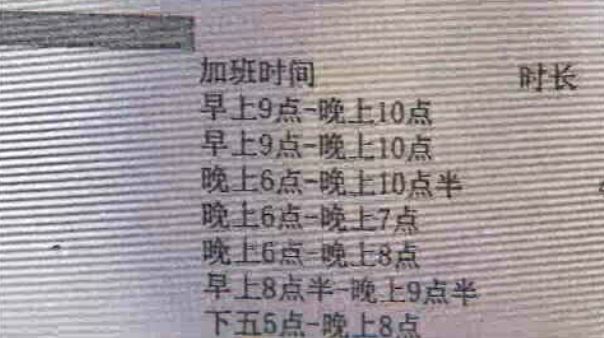 加班时间 时长
早上9点-晚上10点
早上9点-晚上10点
晚上6点-晚上10点半
晚上6点-晚上7点
晚上6点-晚上8点
早上8点半-晚上9点半
下五5点-晚上8点